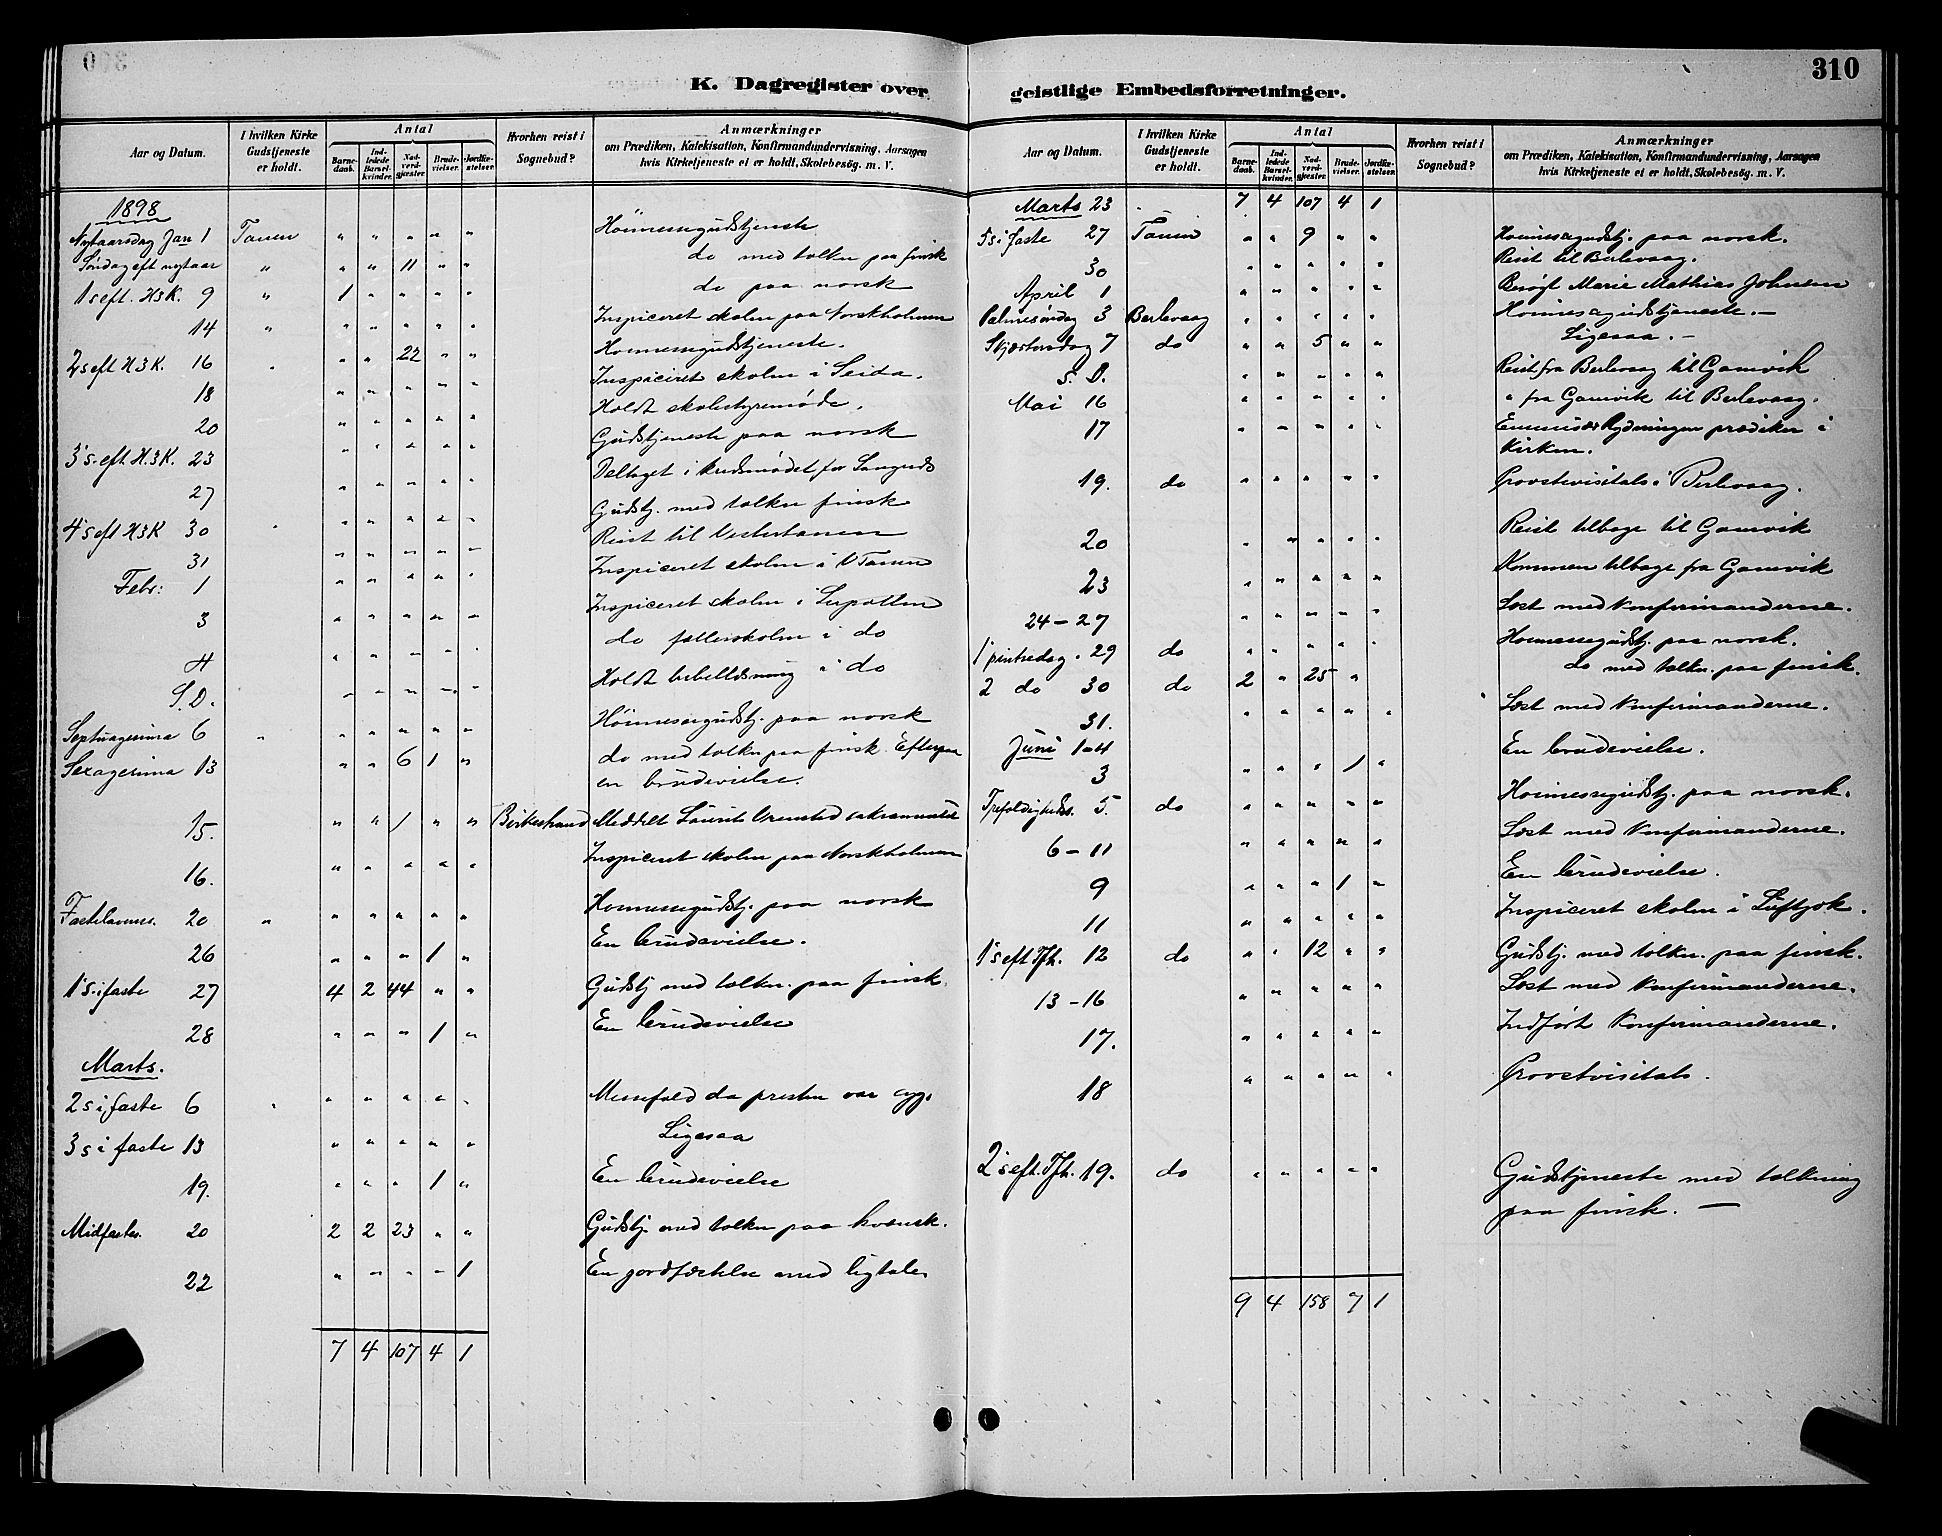 310
K. Dagregister over geistlige Embedsforretninger.
Aar og Datum. I hvilken Kirke Gudstjeneste er holdt. Antal Barnedaab. Indledede Barselkvinder. Nadverdgjæster. Brudevielser. Jordfæstelser. Hvorhen reist i Sognebud? Anmærkninger om Prædiken, Katekisation, Konfirmandundervisning, Aarsagen hvis Kirketjeneste ei er holdt, Skolebesög. m. V.
1898
Nytaarsdag Jan 1 Tanen " " " " " Höimessegudstjeneste
Söndag eft nytaar " " " 11 " " do med tolken paa finsk
1 s eft. H3K. 9 " 1 " " " " do paa norsk
14 " " " " " " Inspiceret skolen paa Norskholmen
2 s eft H3K. 16 " " " 22 " " Hoimessegudstjeneste.
18 " " " " " Inspiceret skolen i Seida.
20 " " " " " Holdt skolestyremöde.
3 s. eft. H3K. 23 " " " " " Gudstjeneste paa norsk
27 " " " " " Deltaget i kredsmödet for
4 s eft H3K 30 " " " " " " Gudstj. med tolken finsk
31 " " " " " Reist til Vestertanen
Febr: 1 " " " " " Inspiceret skolen i V Tanen
3 " " " " " Inspiceret skolen i
4 " " " " " do fællesskolen i do
S.D. " " " " " Holdt bibellæsning i do
Septuagesima 6 " " " " " " Höimessegudstj. paa norsk
Sexagesima 13 " " 6 1 " do med tolken paa finsk. Efterpaa
en brudevielse.
15. " " 1 " " Birkestrand Meddelt Laurits sakramentet
16. " " " " " Inspiceret skolen paa Norskholmen
Fastelavns. 20 " " " " " " Hoimessegudstj. paa norsk
26 " " " 1 " En brudevielse.
1 s. i faste 27 4 2 44 " " Gudstj med tolken paa finsk.
28 " " " 1 " En brudevielse
Marts.
2 s i faste 6 " " " " " " Messefald da presten var syg.
3 s i faste 13 " " " " " Ligesaa
19. " " " 1 " En brudevielse
Midfaste. 20 2 2 23 " " Gudstj. med tolken paa kvænsk.
22 " " " " 1 En jordfæstelse med ligtale
7 4 107 4 1
Aar og Datum. I hvilken Kirke Gudstjeneste er holdt. Antal Barnedaab. Indledede Barselkvinder. Nadverdgjæster. Brudevielser. Jordfæstelser. Hvorhen reist i Sognebud? Anmærkninger om Prædiken, Katekisation, Konfirmandundervisning, Aarsagen hvis Kirketjeneste ei er holdt, Skolebesög. m. V.
Marts 23 7 4 107 4 1
5 s i faste 27 Tanen " " 9 " " Hoimessegudstj. paa norsk.
30 " " " " " Reist til Berlevaag.
April 1 " " " " " Besögt Marie Mathias Johnsen
Palmesöndag 3 Berlevaag " " " " " Hoimessegudstjeneste. —
Skjærtorsdag 7 do " " 5 " " Ligesaa. —
S. D. " " " " " Reist fra Berlevaag til Gamvik
Mai 16 " " " " " " fra Gamvik til Berlevaag.
17 " " " " " Emissær Rydningen prædiker i
Kirken.
19. do " " " " " Provstevisitats i Berlevaag.
20 " " " " " Reist tilbage til Gamvik
23 " " " " " Kommen tilbage fra Gamvik
24 – 27 " " " " " Læst med Konfirmanderne.
1 pintsedag. 29 do " " " " " Hoimessegudstj. paa norsk.
2 do 30 do 2 " 25 " do med tolken paa finsk.
31. " " " " " Læst med Konfirmanderne.
Juni 1–4
3 " " " 1 " En brudevielse.
Trefoldigheds. 5. do " " " " " Hoimessegudstj. paa norsk.
6 – 11 " " " " " Læst med Konfirmanderne.
9 " " " 1 " En brudevielse.
11 " " " " " Inspiceret skolen i Luftjok.
1 s eft Tfh. 12 do " " 12 " " Gudstj. med tolken paa finsk.
13 – 16 " " " " " Læst med Konfirmanderne.
17. " " " " " Indfört Konfirmanderne.
18 " " " " " Provstevisitats.
2 s eft. Tfh. 19. do " " " " " Gudstjeneste med tolkning
paa finsk. —
9 4 158 7 1